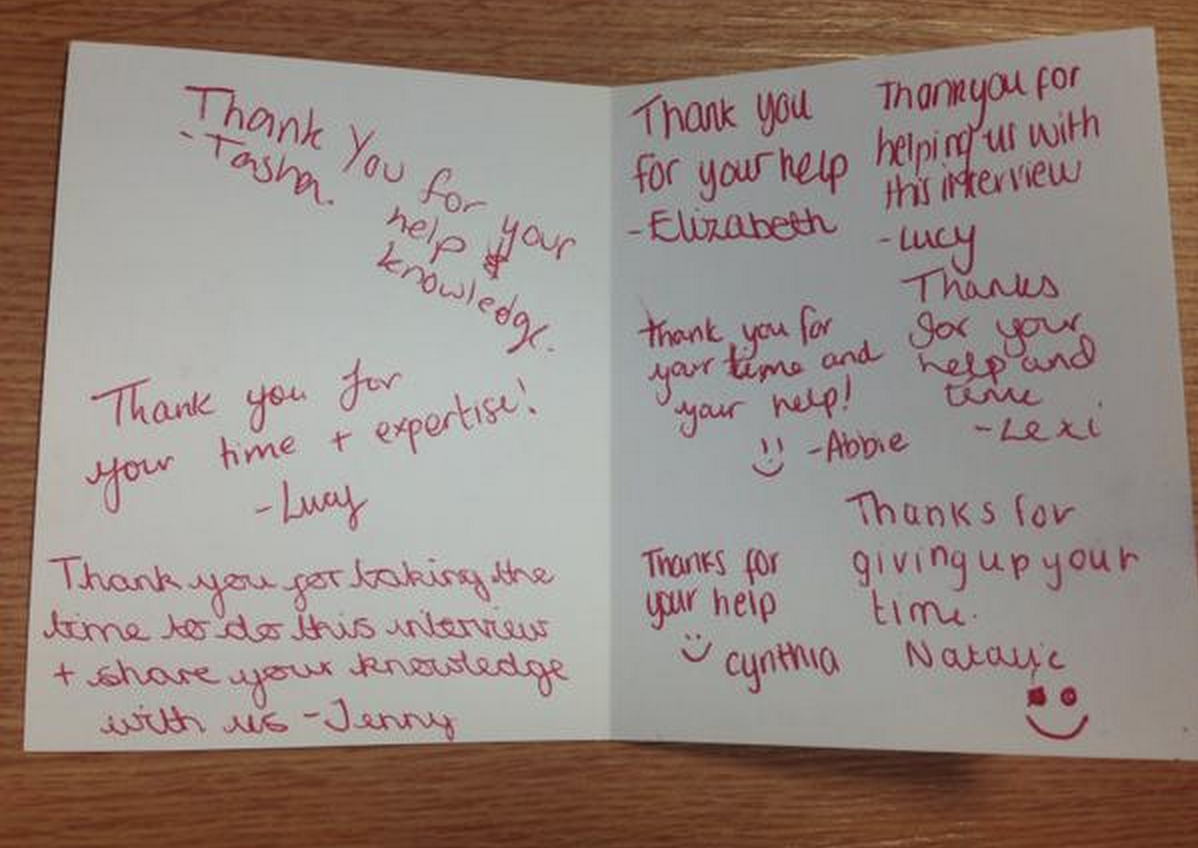 Thank You for your
-Tasha.
help &
knowledge.
Thank you for
your time + expertise!
-Lucy
Thank you for taking the
time to do this interview
+ share your knowledge
with us -Jenny
Thank you
for your help
-Elizabeth
Thankyou for
helping us with
this interview
-Lucy
Thank you for
your time and
your help!
-Abbie
Thanks
for your
help and
time
-Lexi
Thanks for
your help
Cynthia
Thanks for
giving up your
time.
Natalie